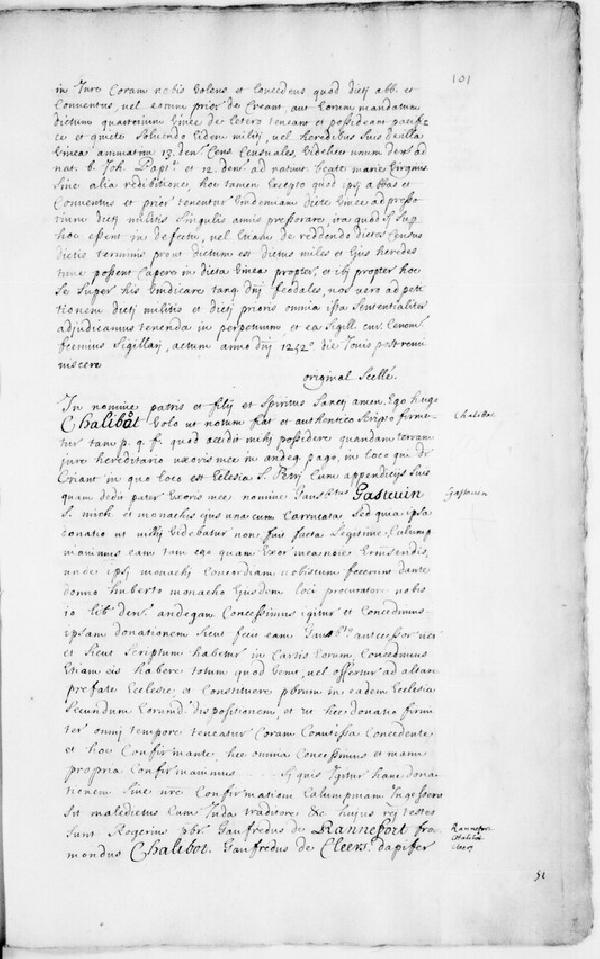 101
in Jure Coram nobis Volens et Concedens quod dictj abb. et
Conventus, vel eorum prior de Creant, aut eorum mandatum
dictum quarterium Vinee de Cetero teneant et possideant pacifi-
ce et quiete Solvendo Eidem militj, vel heredibus suis de illa
Vinea annuatim 13 den. Cens Censuales, Videlicet unum den. ad
nat. b. Joh. Bapt. et 12 den. ad nativit. beate marie Virginis
Sine alia redibitione, hoc tamen Excepto quod ipsj abbas et
Conventus et prior tenentur Vindemiam dicte Vinee ad presso-
rium dictj militis Singulis annis pressorare, ita quod si sup
hoc essent in defectu, vel Etiam de reddendo dictos Census
dictis terminis prout dictum est dictus miles et Ejus heredes
tunc possent Capere in dicta Vinea propter, et ibj propter hoc
Se Super his Vindicare tanq. dnj feodales, nos vero ad peti
tionem dictj militis et dictj prioris omnia ista Sententialiter
adjudicamus tenenda in perpetuum, et ea Sigill. cur. Cenom.
fecimus Sigillarj, actum anno dnj 1252º die Jovis post remi
niscere
original Scellé.
In nomine patris et filij et Spiritus Sanctj amen. Ego hugo
Chalibot Volo ut notum fiat et authentico Scripto firme-
tur tam p. q. f. quod accidit michj possidere quandam terram
jure hereditario uxoris mee in andeg. pago, in loco qui dr
Criant in quo loco est Ecclesia S. Petrj Cum appendicijs Suis
quam dedit pater Uxoris mee nomine Gausbertus Gastuuin
S. mich. et monachis ejus una cum Carrucata Sed quia ipsa
donatio ut michj Videbatur non fuit facta Legitime, Calump
niavimus eam tam ego quam Uxor mea noie Ermensendis,
unde ipsj monachj Concordiam nobiscum fecerunt dante
domno huberto monacho Ejusdem loci procuratore nobis
10 lib. den. andegav. Concessimus igitur et Concedimus
ipsam donationem Sicut fecit eam Gausb. antecessor noster
et Sicut Scriptum habetur in Cartis Eorum, Concedimus
Etiam eis habere totum quod Venit, vel offertur ad altare
prefate Ecclesie, et Constituere pbrum in eadem Ecclesia
Secundum Eorum dispositionem, et ut hec donatio firmi
ter omnj tempore teneatur Coram Comitissa Concedente
et hoc Confirmante, hec omnia Concessimus et manu
propria Confirmavimus ---- Sj quis Igitur hanc dona
tionem Sive Confirmationem Calumpniam Ingesserit
Sit maledictus Cum Juda traditore &c hujus rej testes
Sunt Rogerius pbr. Gaufredus de Rannefort fro
mondus Chalibot. Gaufredus de Cleers. dapifer
Chalibot
Gastuuin
Rannefort
Chalibot
Cleers